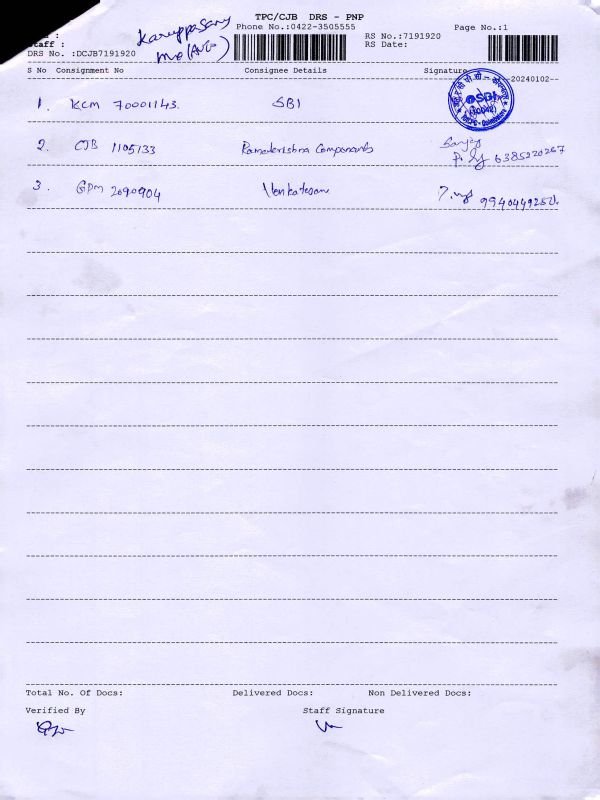 TPC/CJB DRS - PNP
Phone No.:0422-3505555 Page No.:1
Karuppasamy
RS No.:7191920
Staff :
RS Date:
DRS No. :DCJB7191920
S No Consignment No Consignee Details Signature
20240102
1. KCM 70001143. SBI
SBI
2. CJB 1105133 Ramakrishna Components Sanjay
6385220267
3. GPM 2090904 Venkatesan
Total No. Of Docs: Delivered Docs: Non Delivered Docs:
Verified By Staff Signature